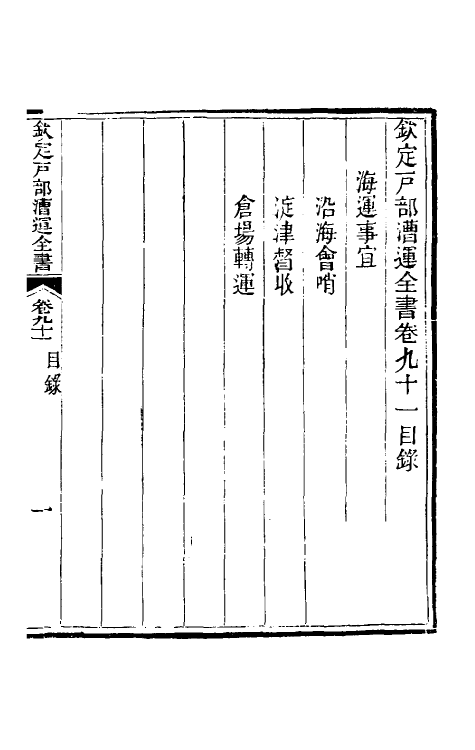 欽定戸部漕運全書卷九十一目錄
海運事宜
沿海會哨
淀津督收
倉場轉運
欽定戸部漕運全書
卷九十一
目錄
一